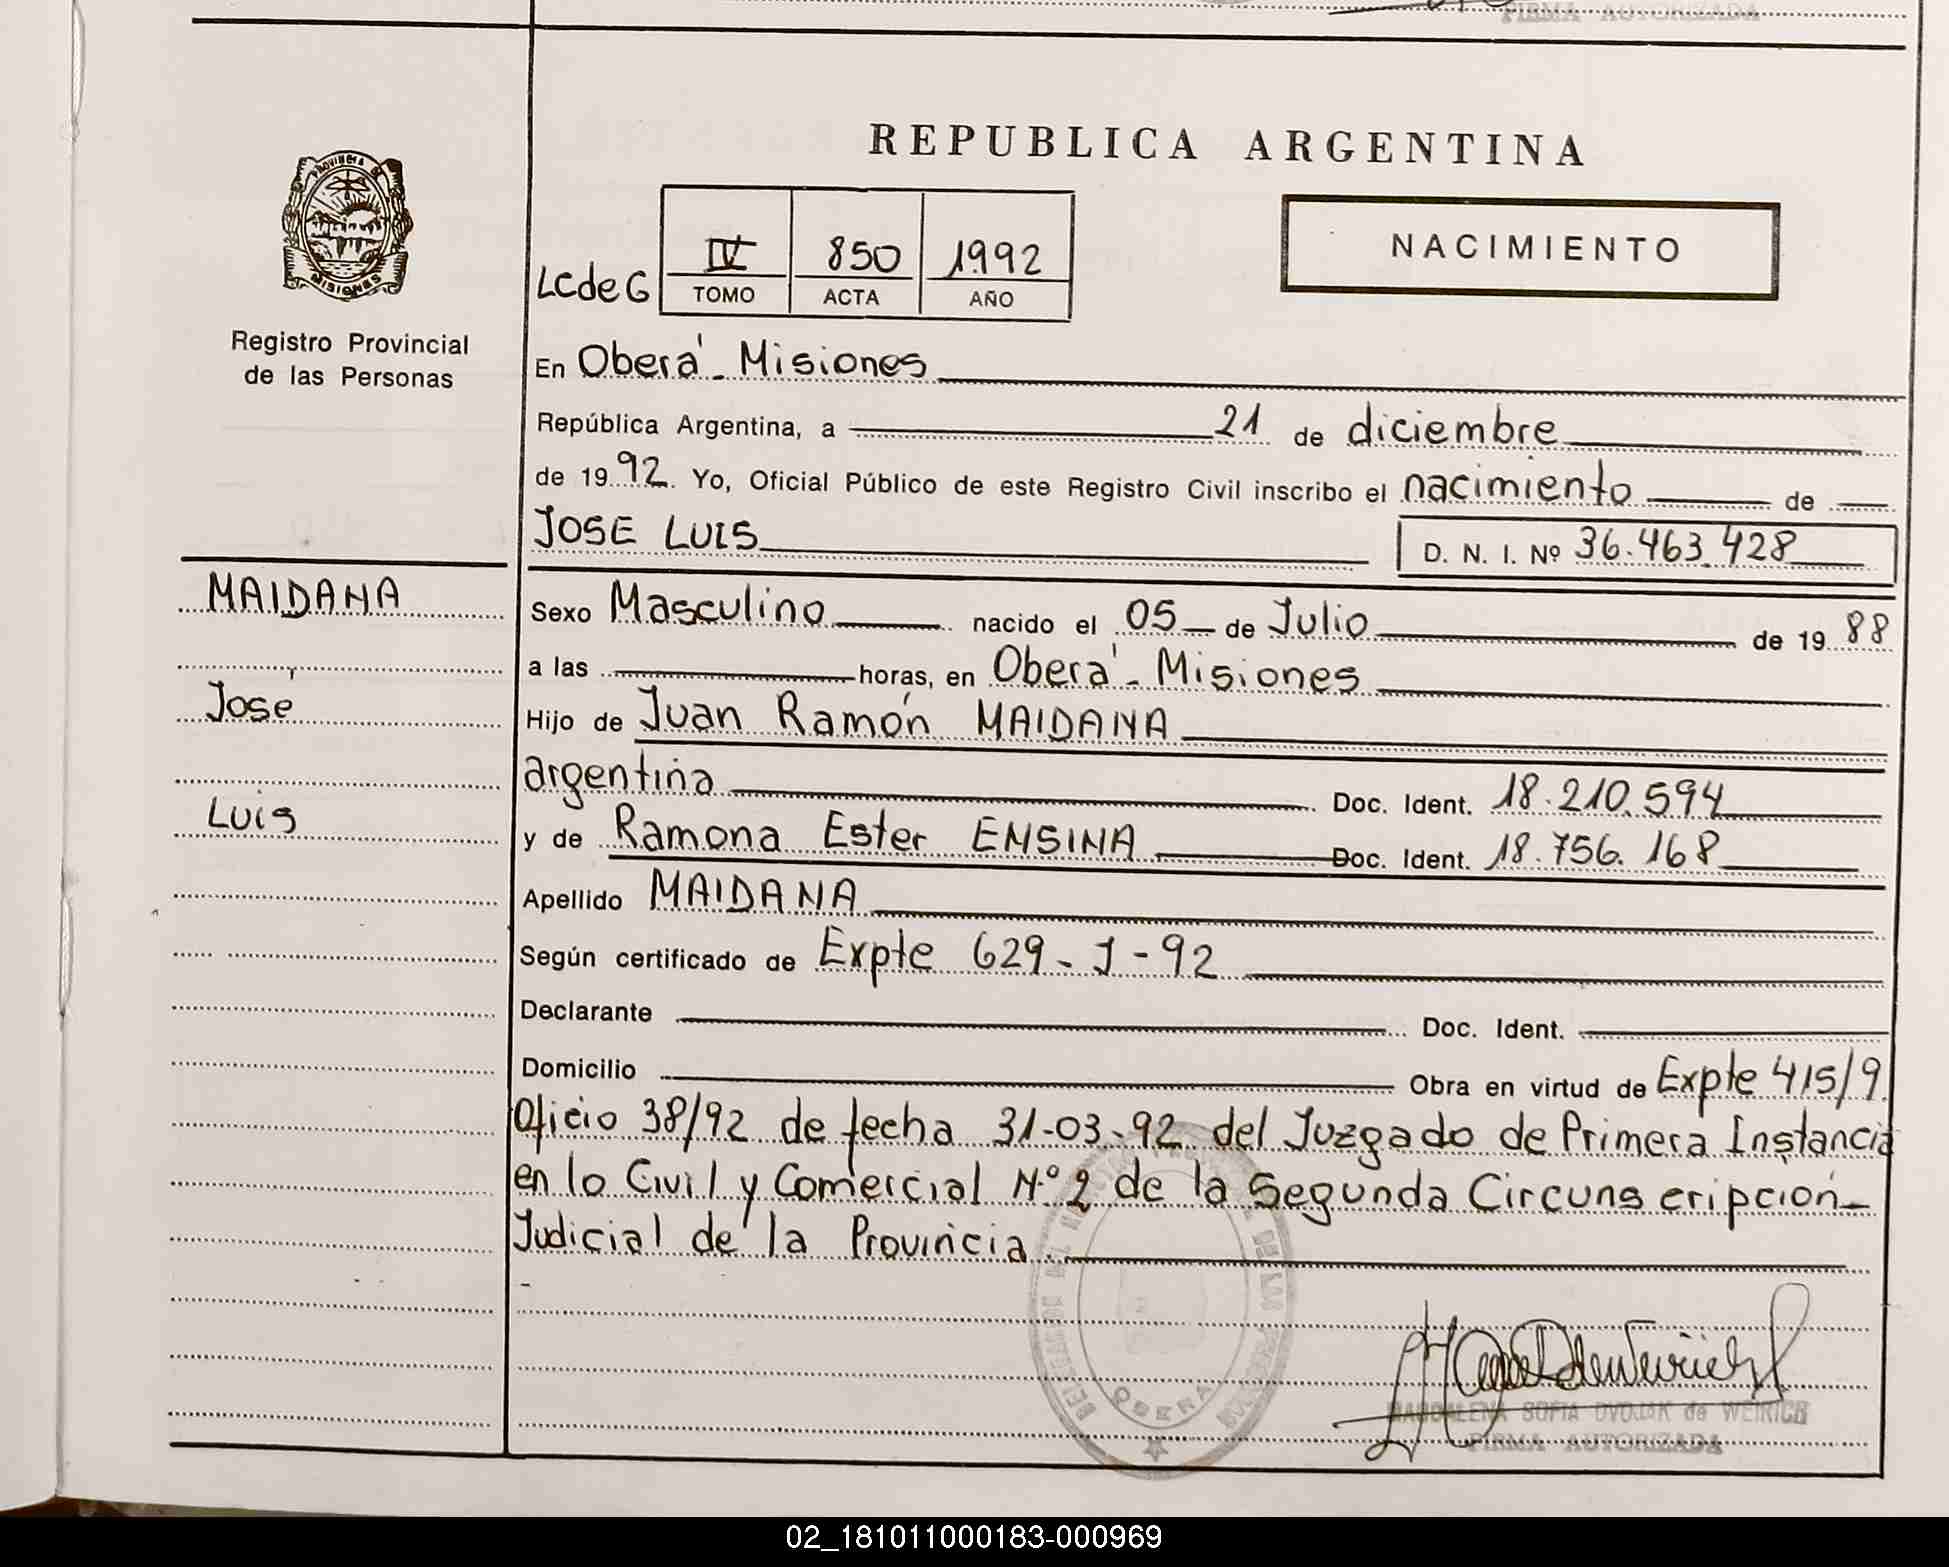 FIRMA AUTORIZADA
REPUBLICA ARGENTINA
PROVINCIA DE
MISIONES
Registro Provincial
de las Personas
LCdeG
IV 850 1992
TOMO ACTA AÑO
NACIMIENTO
En Oberá - Misiones
República Argentina, a 21 de diciembre
de 1992. Yo, Oficial Público de este Registro Civil inscribo el nacimiento de
JOSE LUIS
D. N. I. Nº 36.463.428
MAIDANA
José
Luis
Sexo Masculino nacido el 05 de Julio de 1988
a las horas, en Oberá - Misiones
Hijo de Juan Ramón MAIDANA
argentina Doc. Ident. 18.210.594
y de Ramona Ester ENSINA Doc. Ident. 18.756.168
Apellido MAIDANA
Según certificado de Expte 629-J-92
Declarante Doc. Ident.
Domicilio Obra en virtud de Expte 415/9
Oficio 38/92 de fecha 31-03-92 del Juzgado de Primera Instancia
en lo Civil y Comercial N.º 2 de la Segunda Circunscripción
Judicial de la Provincia.
OBERA
MAGDALENA SOFIA DVOJAK de WEIRICH
FIRMA AUTORIZADA
02_181011000183-000969